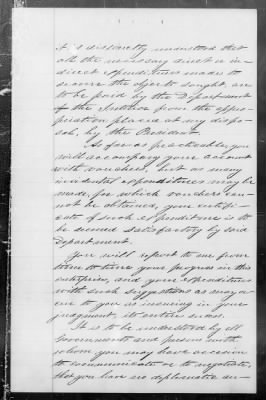 it is distinctly understood that
all the necessary direct or in-
direct expenditures made to
secure the object sought, are
to be paid by the Department
of the Interior from the appro-
priation placed at my dispo-
sal, by the President.
As far as practicable, you
will accompany your account
with vouchers, but as many
incidental expenditures may be
made, for which vouchers can-
not be obtained, your certifi-
cate of such expenditure is to
be deemed satisfactory by said
Department.
You will report to me from
time to time your progress in this
enterprise, and your expenditures
with such suggestions as may oc-
cur to you as insuring in your
judgment, its entire success.
It is to be understood by all
Governments and persons with
whom you may have occasion
to communicate or to negotiate,
that you have no diplomatic au-